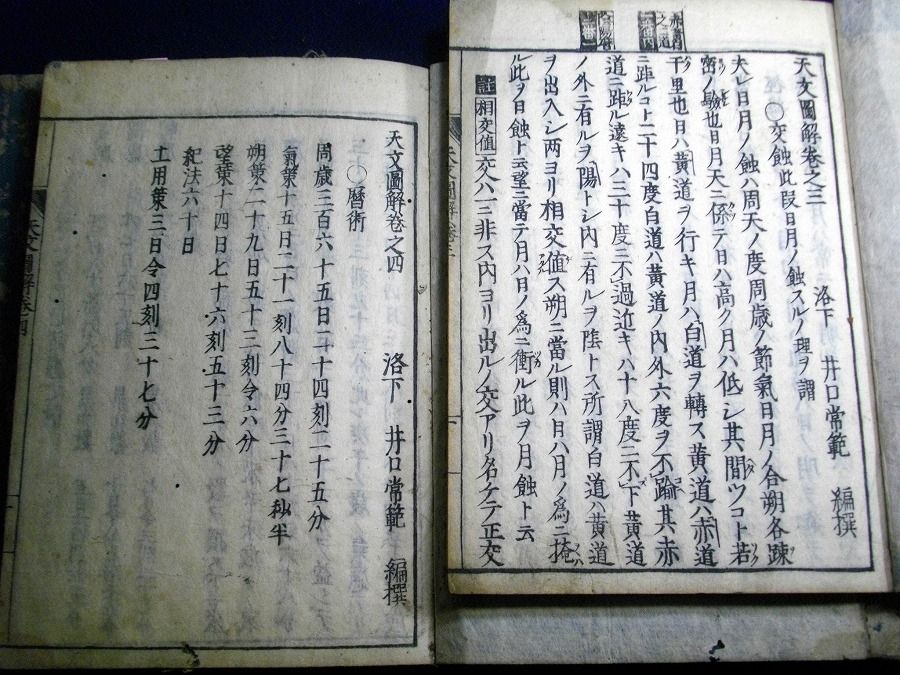 天文圖解卷之三
洛下 井口常範 編撰
〇交蝕此段日月ノ蝕スルノ理ヲ謂
夫レ日月ノ蝕ハ周天ノ度周歳ノ節氣日月ノ合朔各疎
密ノ驗也日月天ニ係テ日ハ高ク月ハ低シ其間ツコト若
千里也日ハ黄道ヲ行キ月ハ白道ヲ轉ス黄道ハ赤道
ニ距ルコト二十四度白道ハ黄道ノ内外六度ヲ不踰其赤
道ニ距ル遠キハ三十度ニ不過近キハ十八度ニ不下黄道
ノ外ニ有ルヲ陽トシ内ニ有ルヲ陰トス所謂白道ハ黄道
ヲ出入シ两ヨリ相交値ス朔ニ當ル則ハ日ハ月ノ爲ニ掩
ル此ヲ日蝕ト云望ニ當テ月ハ日ノ爲ニ衝ル此ヲ月蝕ト云
註 相交値 交ハ一ニ非ス内ヨリ出ルノ交アリ名ケテ正交
天文圖解卷之四
洛下 井口常範 編撰
〇曆術
周歳三百六十五日二十四刻二十五分
氣策十五日二十一刻八十四分三十七秒半
朔策二十九日五十三刻令六分
望策十四日七十六刻五十三分
紀法六十日
土用策三日令四刻三十七分
天文圖解卷四